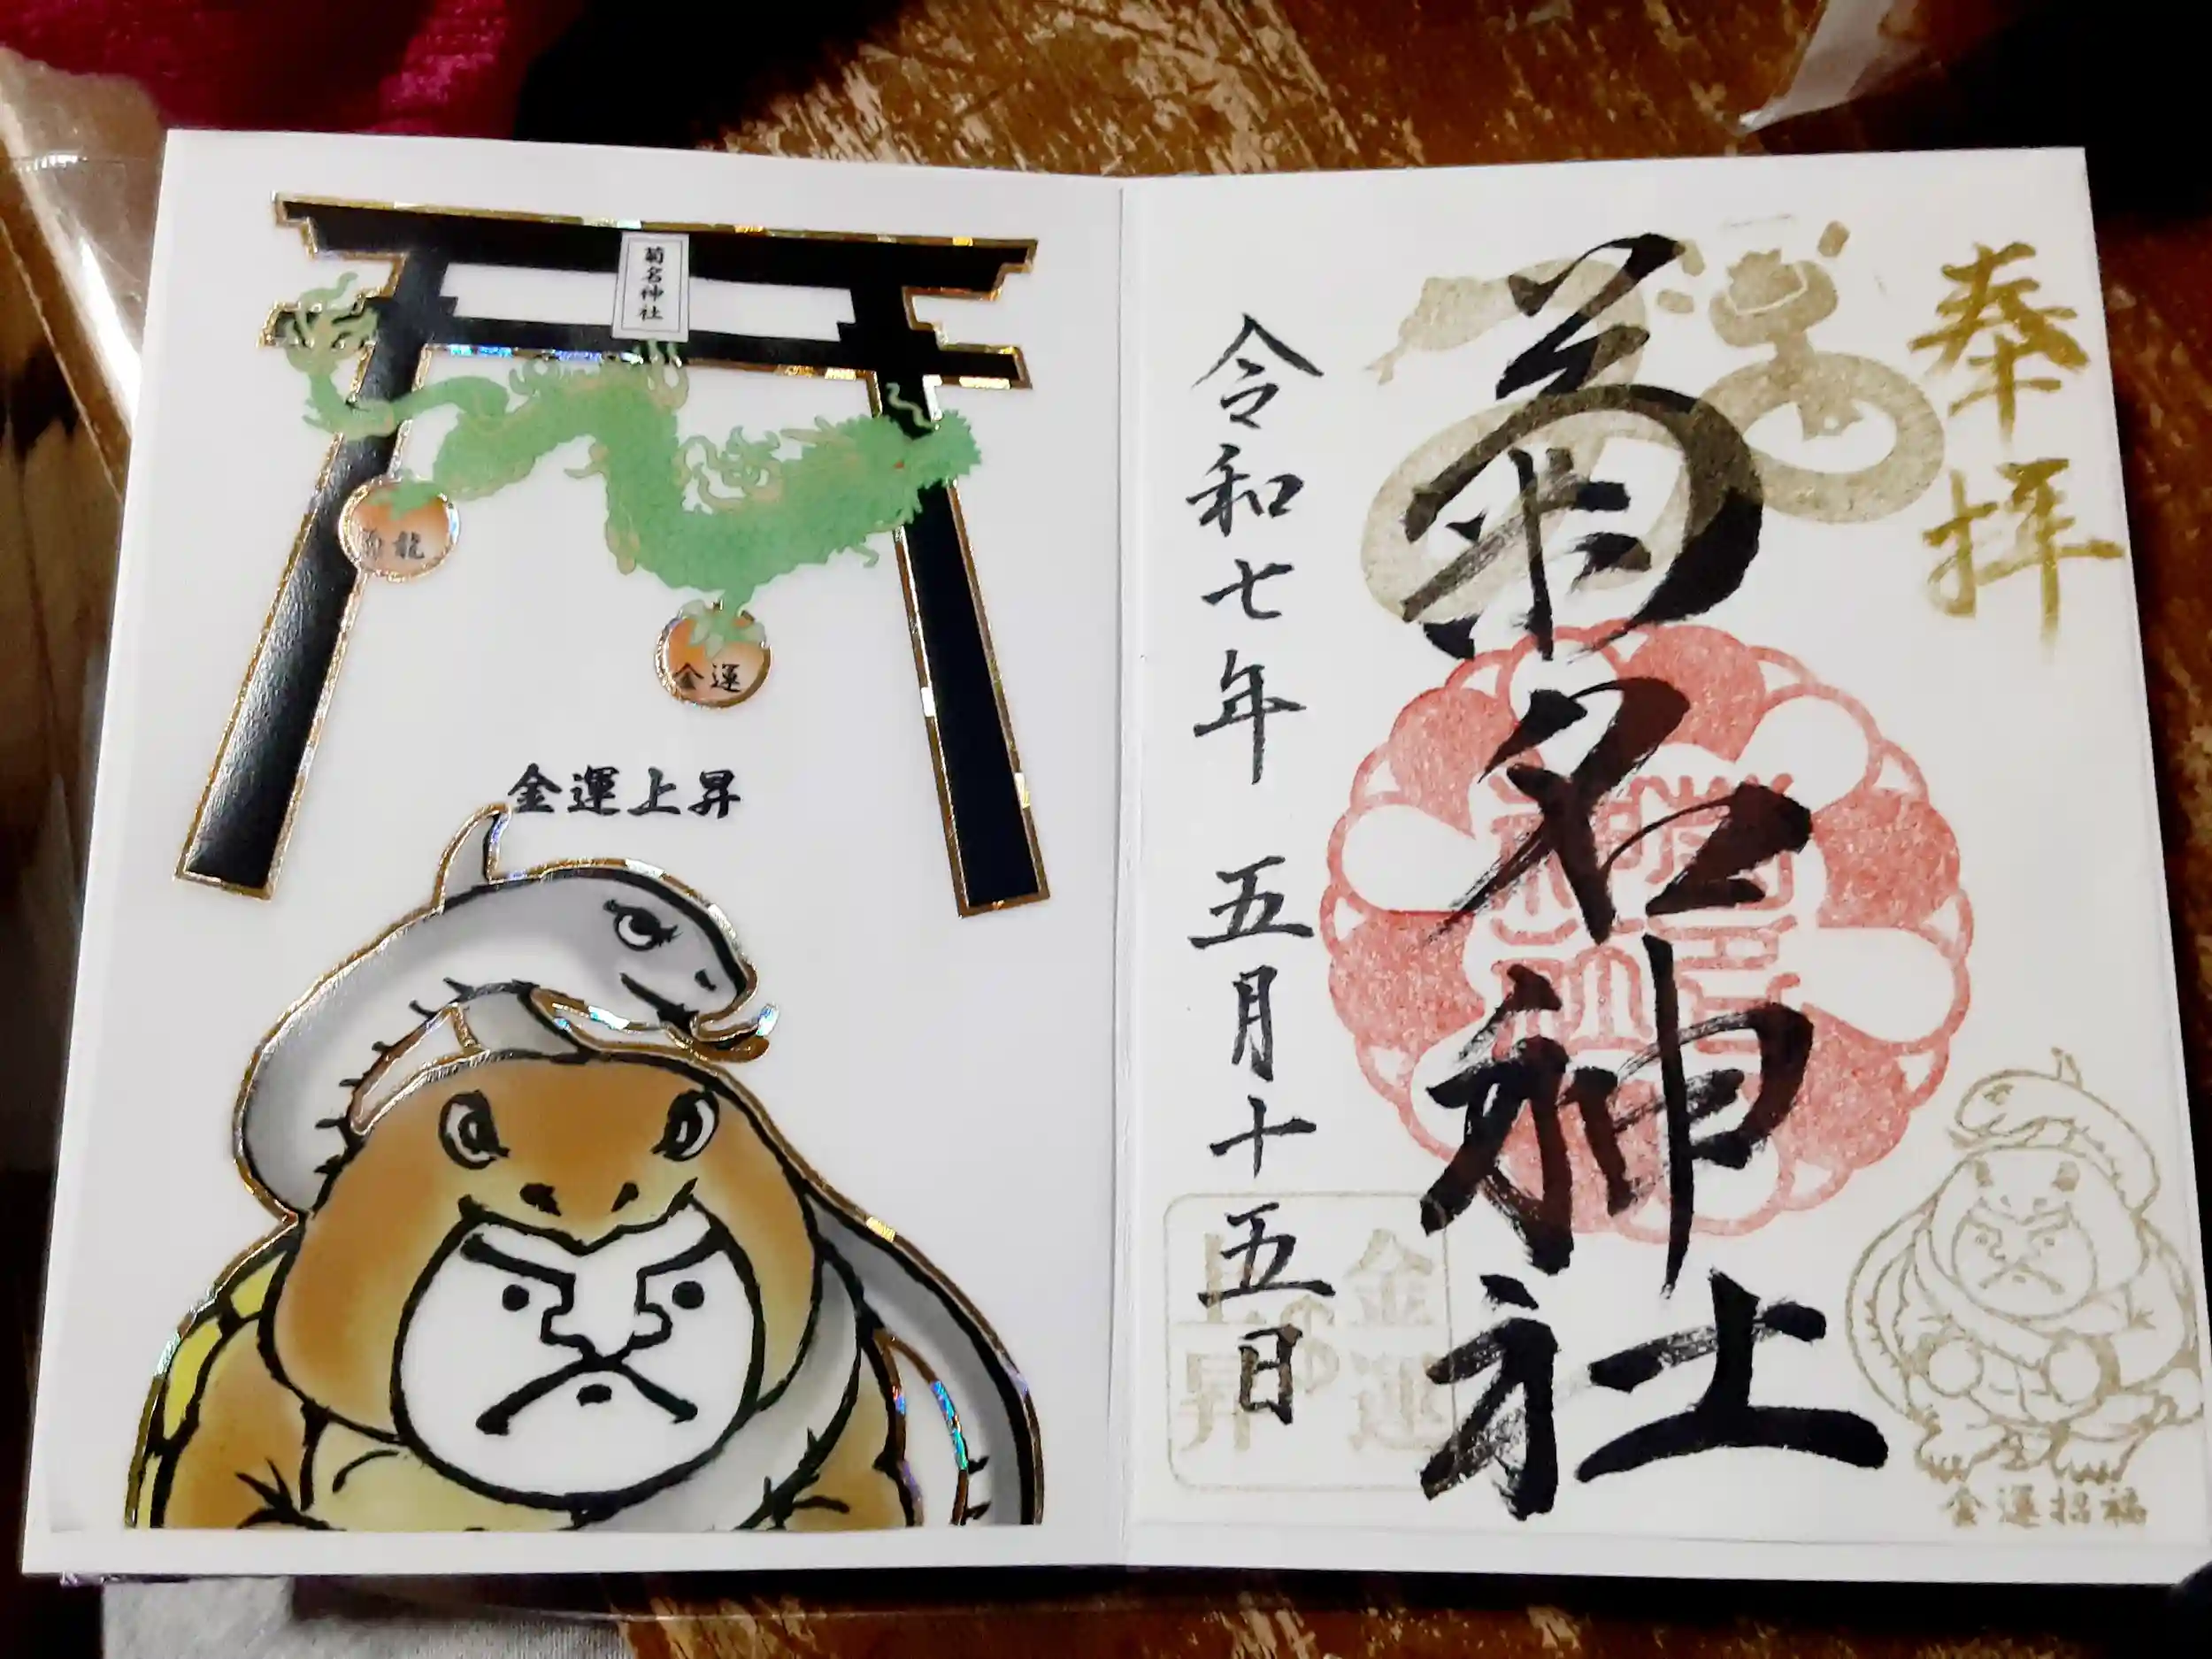 奉拝
菊名神社
令和七年 五月十五日
金運上昇
金運招福
菊名神社
金運
金運上昇